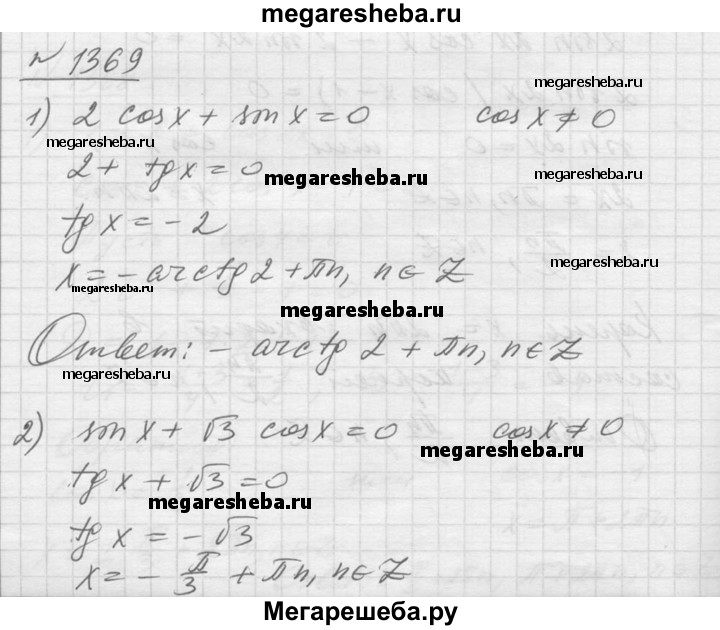 megaresheba.ru
№ 1369
megaresheba.ru
1) 2 cos x + sin x = 0 cos x ≠ 0
megaresheba.ru
2 + tg x = 0
megaresheba.ru
megaresheba.ru
tg x = - 2
megaresheba.ru
x = - arctg 2 + πn, n ∈ Z
megaresheba.ru
megaresheba.ru
Ответ: - arctg 2 + πn, n ∈ Z
megaresheba.ru
2) sin x + √3 cos x = 0 cos x ≠ 0
megaresheba.ru
tg x + √3 = 0
megaresheba.ru
tg x = - √3
x = - π/3 + πn, n ∈ Z
Мегарешеба.ру